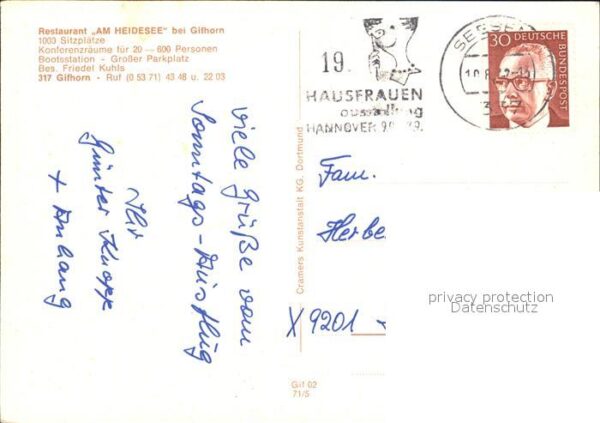 Restaurant „AM HEIDESEE" bei Gifhorn
1003 Sitzplätze
Konferenzräume für 20 — 600 Personen
Bootsstation - Großer Parkplatz
Bes. Friedel Kuhls
317 Gifhorn - Ruf (0 53 71) 43 48 u. 22 03
viele Grüße vom
Sonntags-Ausflug
Ihr
Günter Knopp
+ Anhang
Cramers Kunstanstalt KG. Dortmund
Gif 02
71/5
19.
HAUSFRAUEN
ausstellung
HANNOVER
SEESEN
30
DEUTSCHE
BUNDESPOST
Fam.
Herbe
X 9201
privacy protection
Datenschutz